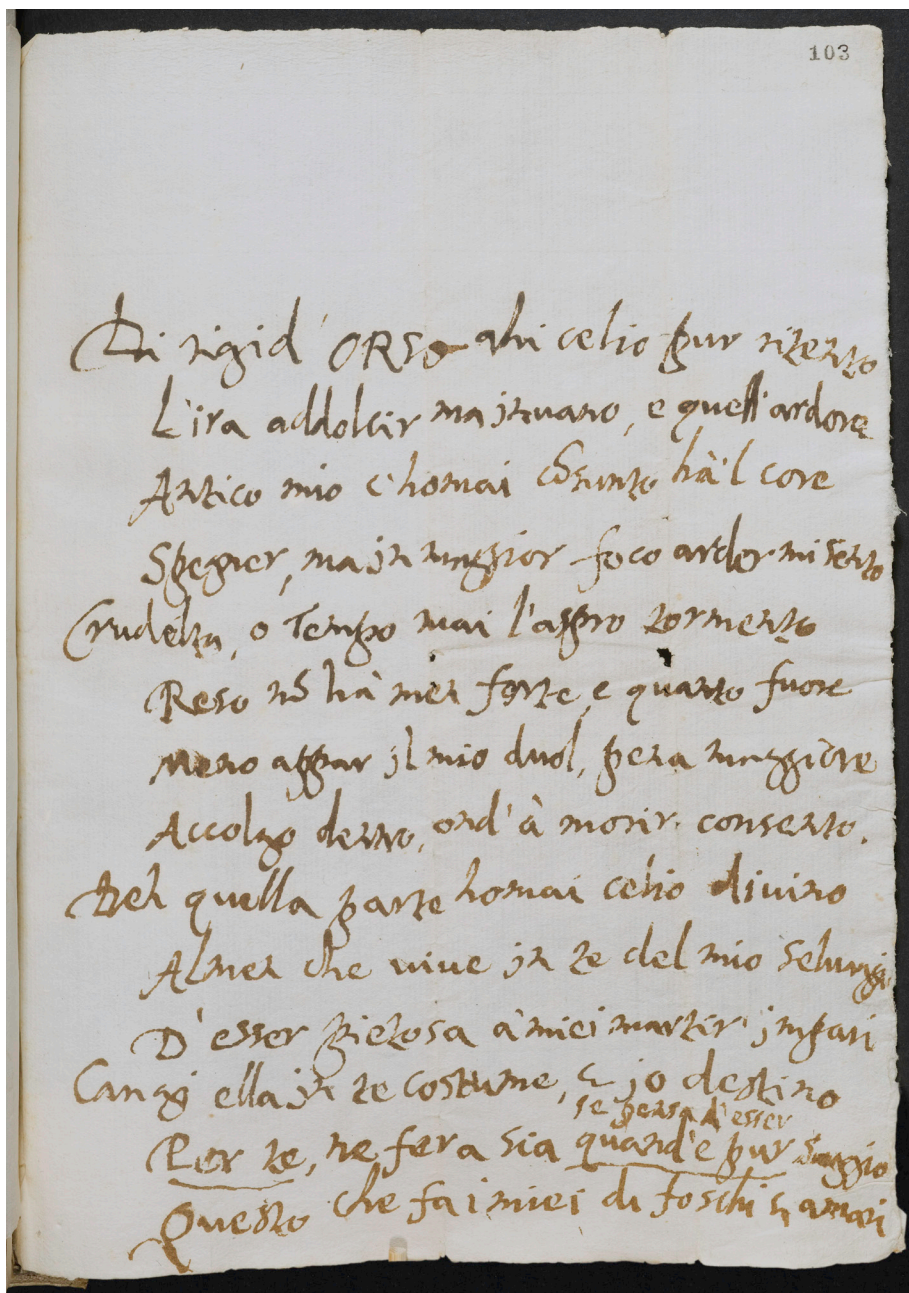 103
Di rigid' ORSO ahi celio pur ritento
L'ira addolcir ma jnuano, e quell'ardore
Antico mio c'homai cõsunto hà'l core
Spegner, ma jn maggior foco arder mi sento
Crudeltà, o Tempo mai l'aspro tormento
Reso nõ hà men forte, e quanto fuore
Meno appar jl mio duol, pena maggiore
Accolgo dentro, ond'à morir consento.
Deh quella parte homai celio diuino
Almen che uiue jn te del mio seluaggi
D'esser pietosa à miei martir' jmpari
Cangi ella jn te costume, & jo destino
se pensa d'esser
Per te, ne fera sia quand'è pur saggio
Questo che fa i miei dì foschi & amari